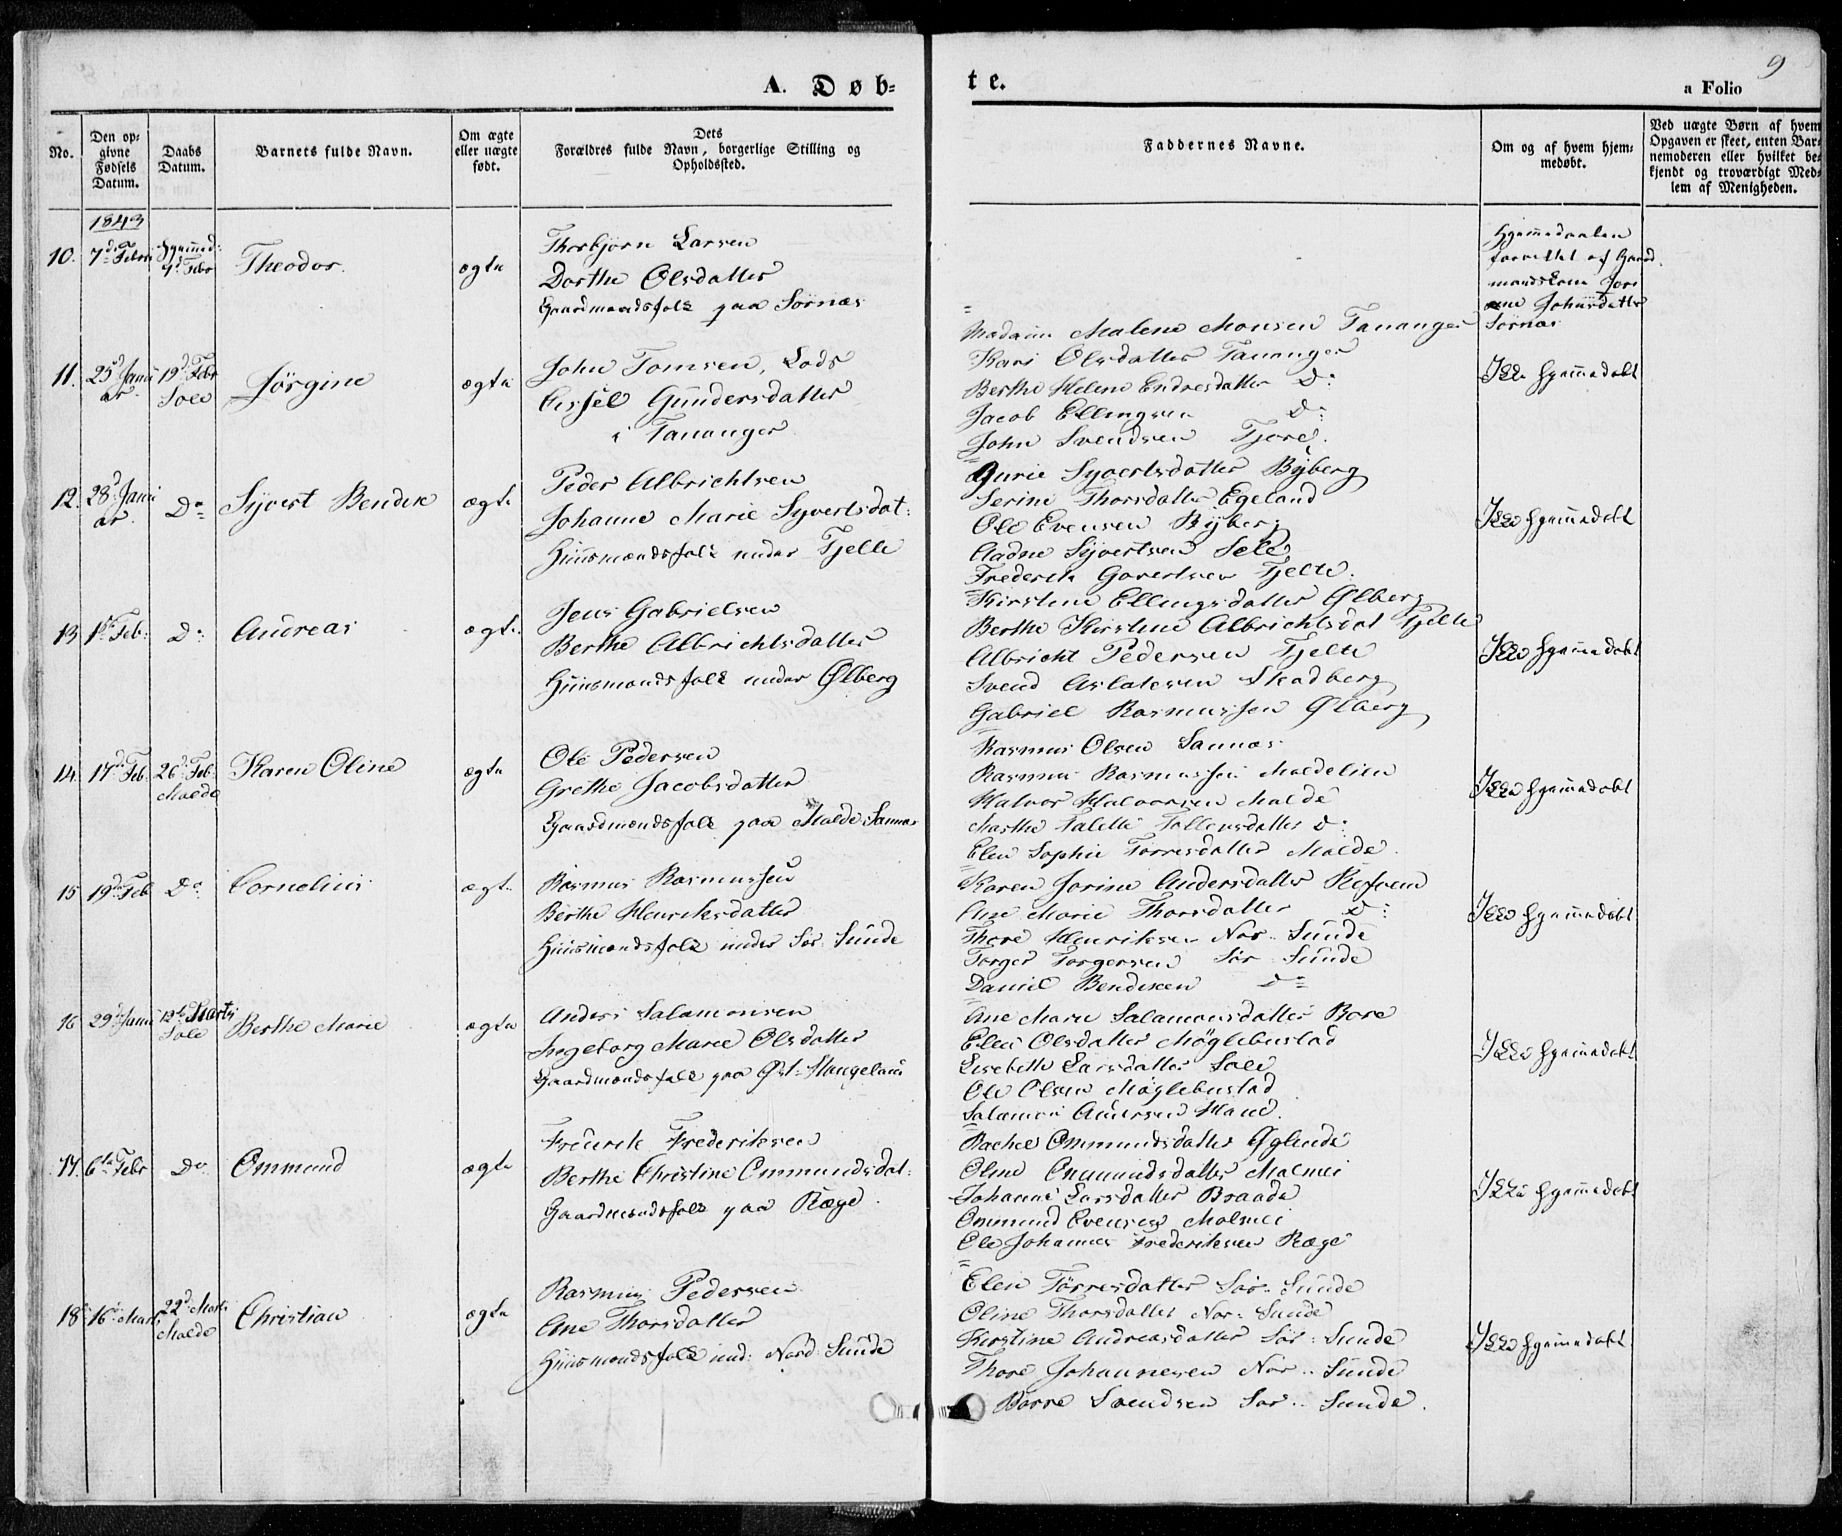 A. Døb=
te.
9
a Folio
No.
Den op-
givne
Fødsels
Datum.
Daabs
Datum.
Barnets fulde Navn.
Om ægte
eller uægte
født.
Dets
Forældres fulde Navn, borgerlige Stilling og
Opholdssted.
Faddernes Navne.
Om og af hvem hjem-
medøbt.
Ved uægte Børn af hvem
Opgaven er skeet, enten Bar-
nemoderen eller hvilket be-
kjendt og troværdigt Med-
lem af Menigheden.
1843
10. 7de Febr
Hjemmed:
Febr
Theodor.
ægte
Thorbjørn Larsen
Dorthe Olsdatter
Gaardmandsfolk paa Sørnæs
Hjemmedaaben
forrettet af Gaard
mandskone
Johnsdatter
Sørnæs
11. 25d Janu
ar.
19d Febr
Sole
Jörgine
ægte
John Tomsen, Lods
Cissel Gundersdatter
i Tananger
Madam Malene Monsen Tananger
Kari Olsdatter Tananger
Berthe Helene Endresdatter Do
Jacob Ellingsen Do
John Svendsen Tjore.
Ikke hjemmedøbt
12. 28d Janu
ar.
Do
Syvert Bendik
ægte
Peder Albrichtsen
Johanne Marie Syvertsdat:
Huusmandsfolk under Tjelte
Gurie Syvertsdatter Byberg
Serine Thorsdatter Egeland
Ole Evensen Byberg
Aadne Syvertsen Sele
Frederik Govertsen Tjelte.
Ikke hjemmedøbt
13. 1ste Feb:
Do
Andreas
ægte
Jens Gabrielsen
Berthe Albrichtsdatter
Huusmandsfolk under Ølberg
Kirstine Ellingsdatter Ølberg
Berthe Kirstine Albrichtsdat Tjelte
Albricht Pedersen Tjelte
Svend Aslaksen Skadberg
Gabriel Rasmussen Ølberg
Ikke hjemmedøbt
14. 17d Feb.
26d Feb.
Malde
Karen Oline
ægte
Ole Pedersen
Grethe Jacobsdatter
Gaardmandsfolk paa Malde Sannæs
Rasmus Olsen Sannæs
Rasmus Rasmussen Maldelien
Halvor Halvorsen Malde
Marthe Falette Tollensdatter Do
Elen Sophie Torresdatter Malde.
Ikke hjemmedøbt
15 19de Feb
Do
Cornelius
ægte
Rasmus Rasmussen
Berthe Henriksdatter
Huusmandsfolk under Sør Sunde
Karen Jorine Andersdatter Refvem
Ane Marie Thorsdatter Do
Thore Henriksen Nor Sunde
Torger Torgersen Sør Sunde
Daniel Bendixen Do
Ikke hjemmedøbt
16 29de Janu
12te Marts
Sole
Berthe Marie
ægte
Anders Salamonsen
Ingeborg Marie Olsdatter
Gaardmandsfolk paa Øst-Hangeland
Ane Marie Salamonsdatter Bore
Elen Olsdatter Møglebustad
Lisebeth Larsdatter Sole
Ole Olsen Møglebustad
Salamon Andersen Haand.
Ikke hjemmedøbt
17. 6te Febr
Do
Ommund
ægte
Fredrik Frederiksen
Berthe Christine Ommundsdat:
Gaardmandsfolk paa Ræge.
Rachel Ommundsdatter Øglende
Oline Ommundsdatter Malmei
Johanne Larsdatter Braade
Ommund Evensen Malmei
Ole Johannes Frederiksen Ræge
Ikke hjemmedøbt
18 16d Marts
22d Marts
Malde
Christian
ægte
Rasmus Pedersen
Ane Thorsdatter
Huusmandsfolk und: Nord Sunde
Elen Tørresdatter Sør Sunde
Oline Thorsdatter Nor: Sunde
Kirstine Andreasdatter Sør: Sunde
Thore Johannesen Nor Sunde
Borre Svendsen Sør Sunde.
Ikke hjemmedøbt